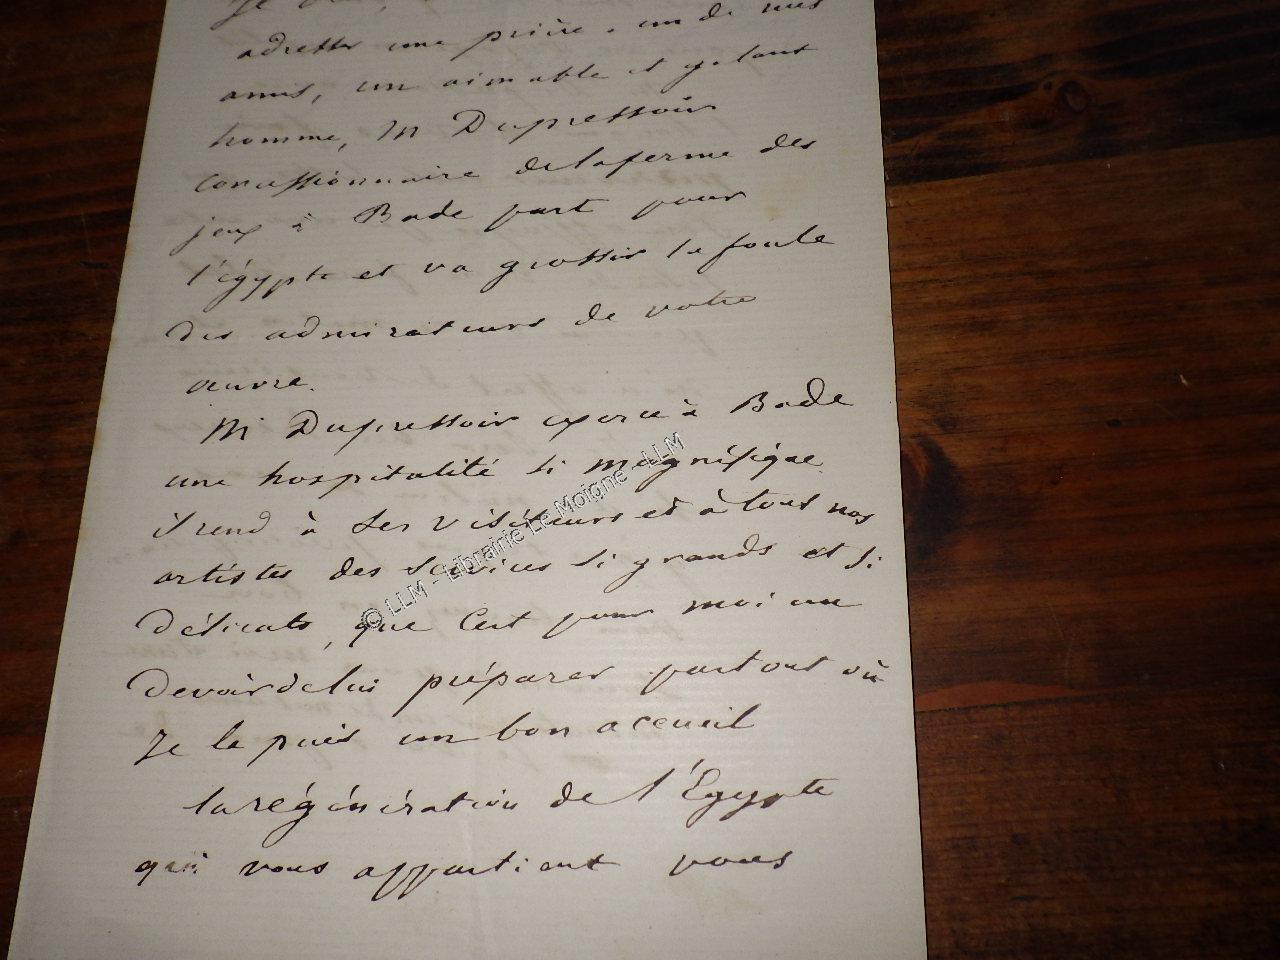 Je
adresser une prière. un de mes
amis, un aimable et galant
homme, M Dupressoir
concessionnaire de la ferme des
jeux à Bade part pour
l'égypte et va grossir la foule
des admirateurs de votre
œuvre.
M Dupressoir exerce à Bade
une hospitalité si magnifique
il rend à ses visiteurs et à tous nos
artistes des services si grands et si
délicats, que c'est pour moi un
devoir de lui préparer partout où
je le puis un bon accueil
la régénération de l'Égypte
qui vous appartient vous
© LLM - Librairie Le Moigne - LLM